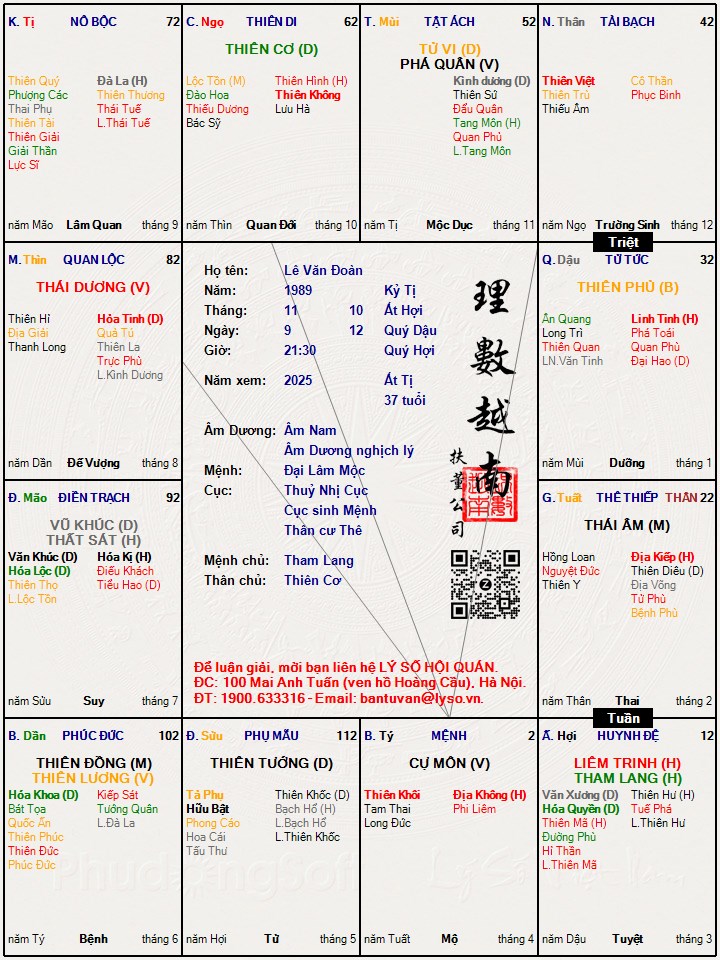 K. Tị NÔ BỘC 72
Thiên Quý
Phượng Các
Thai Phụ
Thiên Tài
Thiên Giải
Giải Thần
Lực Sĩ
Đà La (H)
Thiên Thương
Thái Tuế
L.Thái Tuế
năm Mão Lâm Quan tháng 9
C. Ngọ THIÊN DI 62
THIÊN CƠ (D)
Lộc Tồn (M)
Đào Hoa
Thiếu Dương
Bác Sỹ
Thiên Hình (H)
Thiên Không
Lưu Hà
năm Thìn Quan Đới tháng 10
T. Mùi TẬT ÁCH 52
TỬ VI (D)
PHÁ QUÂN (V)
Kình dương (D)
Thiên Sứ
Đẩu Quân
Tang Môn (H)
Quan Phủ
L.Tang Môn
năm Tị Mộc Dục tháng 11
N. Thân TÀI BẠCH 42
Thiên Việt
Thiên Trù
Thiếu Âm
Cô Thần
Phục Binh
năm Ngọ Trường Sinh tháng 12
Triệt
M. Thìn QUAN LỘC 82
THÁI DƯƠNG (V)
Thiên Hỉ
Địa Giải
Thanh Long
Hỏa Tinh (D)
Quả Tú
Thiên La
Trực Phù
L.Kình Dương
năm Dần Đế Vượng tháng 8
Họ tên: Lê Văn Đoàn
Năm: 1989 Kỷ Tị
Tháng: 11 10 Ất Hợi
Ngày: 9 12 Quý Dậu
Giờ: 21:30 Quý Hợi
Năm xem: 2025 Ất Tị
37 tuổi
Âm Dương: Âm Nam
Âm Dương nghịch lý
Mệnh: Đại Lâm Mộc
Cục: Thuỷ Nhị Cục
Cục sinh Mệnh
Thân cư Thê
Mệnh chủ: Tham Lang
Thân chủ: Thiên Cơ
理
數
越
南
扶
董
公
司
Để luận giải, mời bạn liên hệ LÝ SỐ HỘI QUÁN.
ĐC: 100 Mai Anh Tuấn (ven hồ Hoàng Cầu), Hà Nội.
ĐT: 1900.633316 - Email: bantuvan@lyso.vn.
Q. Dậu TỬ TỨC 32
THIÊN PHỦ (B)
Ân Quang
Long Trì
Thiên Quan
LN.Văn Tinh
Linh Tinh (H)
Phá Toái
Quan Phù
Đại Hao (D)
năm Mùi Dưỡng tháng 1
Đ. Mão ĐIỀN TRẠCH 92
VŨ KHÚC (D)
THẤT SÁT (H)
Văn Khúc (D)
Hóa Lộc (D)
Thiên Thọ
L.Lộc Tồn
Hóa Kị (H)
Điếu Khách
Tiểu Hao (D)
năm Sửu Suy tháng 7
G. Tuất THÊ THIẾP THÂN 22
THÁI ÂM (M)
Hồng Loan
Nguyệt Đức
Thiên Y
Địa Kiếp (H)
Thiên Diêu (D)
Địa Võng
Tử Phù
Bệnh Phù
năm Thân Thai tháng 2
Tuần
B. Dần PHÚC ĐỨC 102
THIÊN ĐỒNG (M)
THIÊN LƯƠNG (V)
Hóa Khoa (D)
Bát Tọa
Quốc Ấn
Thiên Phúc
Thiên Đức
Phúc Đức
Kiếp Sát
Tướng Quân
L.Đà La
năm Tý Bệnh tháng 6
Đ. Sửu PHỤ MẪU 112
THIÊN TƯỚNG (D)
Tả Phụ
Hữu Bật
Phong Cáo
Hoa Cái
Tấu Thư
Thiên Khốc (D)
Bạch Hổ (H)
L.Bạch Hổ
L.Thiên Khốc
năm Hợi Tử tháng 5
B. Tý MỆNH 2
CỰ MÔN (V)
Thiên Khôi
Tam Thai
Long Đức
Địa Không (H)
Phi Liêm
năm Tuất Mộ tháng 4
Ấ. Hợi HUYNH ĐỆ 12
LIÊM TRINH (H)
THAM LANG (H)
Văn Xương (D)
Hóa Quyền (D)
Thiên Mã (H)
Đường Phù
Hỉ Thần
L.Thiên Mã
Thiên Hư (H)
Tuế Phá
L.Thiên Hư
năm Dậu Tuyệt tháng 3